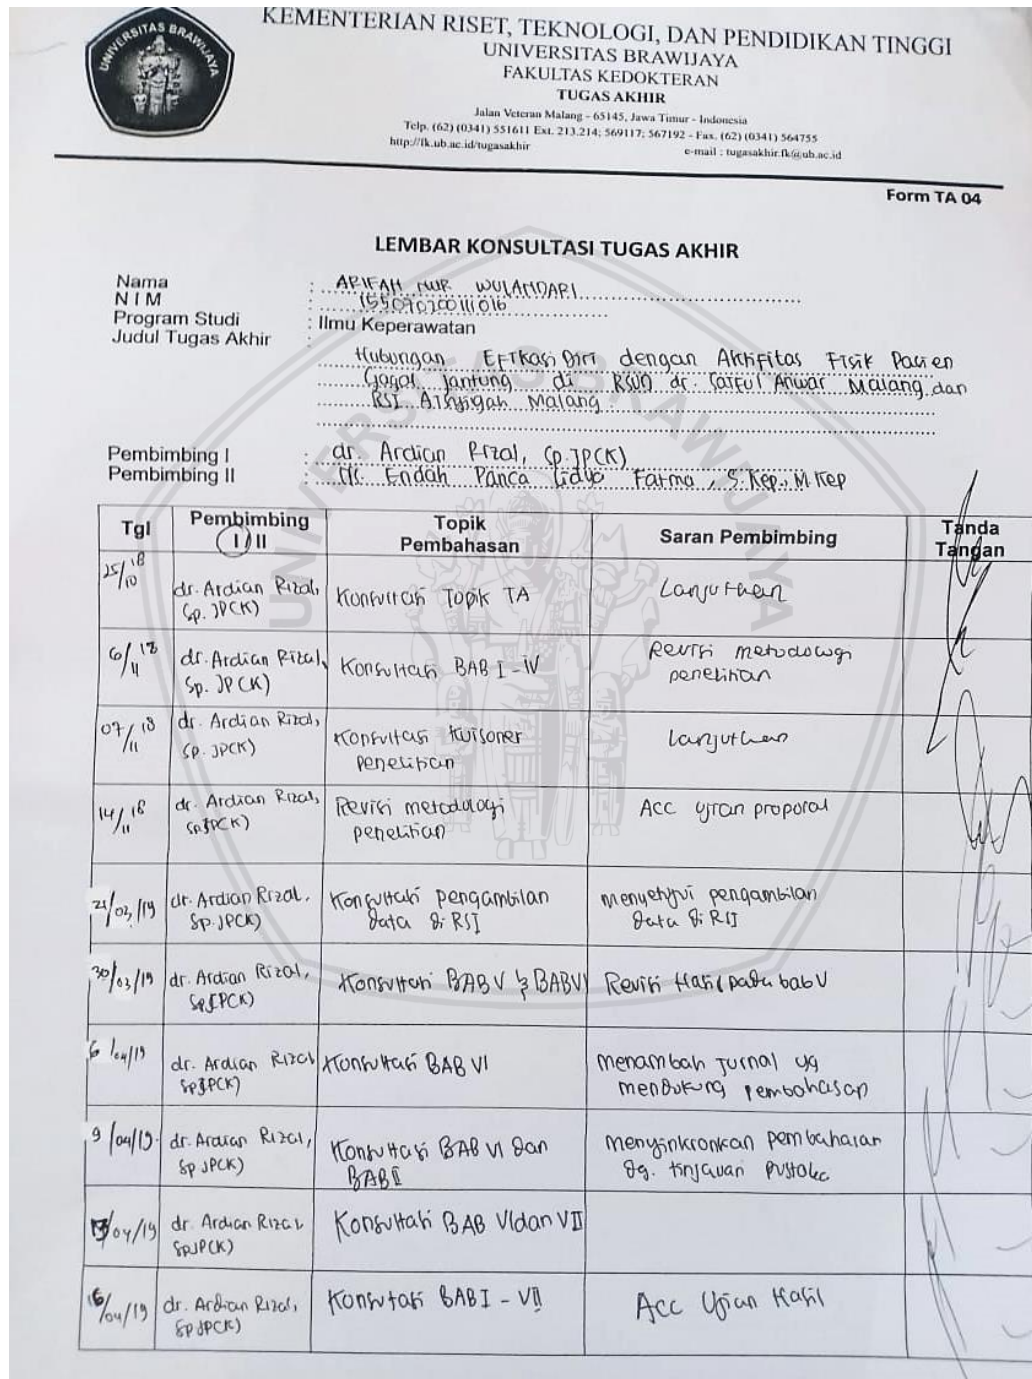 UNIVERSITAS BRAWIJAYA
KEMENTERIAN RISET, TEKNOLOGI, DAN PENDIDIKAN TINGGI
UNIVERSITAS BRAWIJAYA
FAKULTAS KEDOKTERAN
TUGAS AKHIR
Jalan Veteran Malang - 65145, Jawa Timur - Indonesia
Telp. (62) (0341) 551611 Ext. 213.214; 569117; 567192 - Fax. (62) (0341) 564755
http://fk.ub.ac.id/tugasakhir e-mail : tugasakhir.fk@ub.ac.id
Form TA 04
LEMBAR KONSULTASI TUGAS AKHIR
Nama : ARIFAH NUR WULANDARI
N I M : 155070200111016
Program Studi : Ilmu Keperawatan
Judul Tugas Akhir :
Hubungan Efikasi Diri dengan Aktifitas Fisik Pasien
Gagal Jantung di RSUD dr. Saiful Anwar Malang dan
RSI Aisyiyah Malang
Pembimbing I : dr. Ardian Rizal, Sp.JP(K)
Pembimbing II : Endah Panca Lidya Fatma, S.Kep., M.Kep
Tgl Pembimbing I / II Topik Pembahasan Saran Pembimbing Tanda Tangan
25/10 18 dr. Ardian Rizal, Sp. JP(K) Konsultasi Topik TA Lanjutkan
6/11 18 dr. Ardian Rizal, Sp. JP(K) Konsultasi BAB I - IV Revisi metodologi penelitian
07/11 18 dr. Ardian Rizal, Sp. JP(K) Konsultasi Kuisoner penelitian Lanjutkan
14/11 18 dr. Ardian Rizal, Sp.JP(K) Revisi metodologi penelitian Acc ujian proposal
21/03/19 dr. Ardian Rizal, Sp. JP(K) Konsultasi pengambilan data di RSI Menyetujui pengambilan data di RSI
30/03/19 dr. Ardian Rizal, Sp.JP(K) Konsultasi BAB V & BAB VI Revisi Hasil pada bab V
6/04/19 dr. Ardian Rizal Sp.JP(K) Konsultasi BAB VI Menambah jurnal yg mendukung pembahasan
9/04/19 dr. Ardian Rizal, Sp JP(K) Konsultasi BAB VI dan BAB II Menyinkronkan pembahasan dg. tinjauan pustaka
13/04/19 dr. Ardian Rizal, Sp.JP(K) Konsultasi BAB VI dan VII
16/04/19 dr. Ardian Rizal, Sp JP(K) Konsultasi BAB I - VII Acc Ujian Hasil